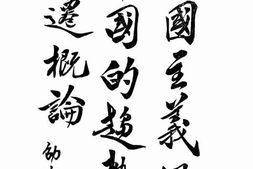 國主義
國的趨勢
遷概論